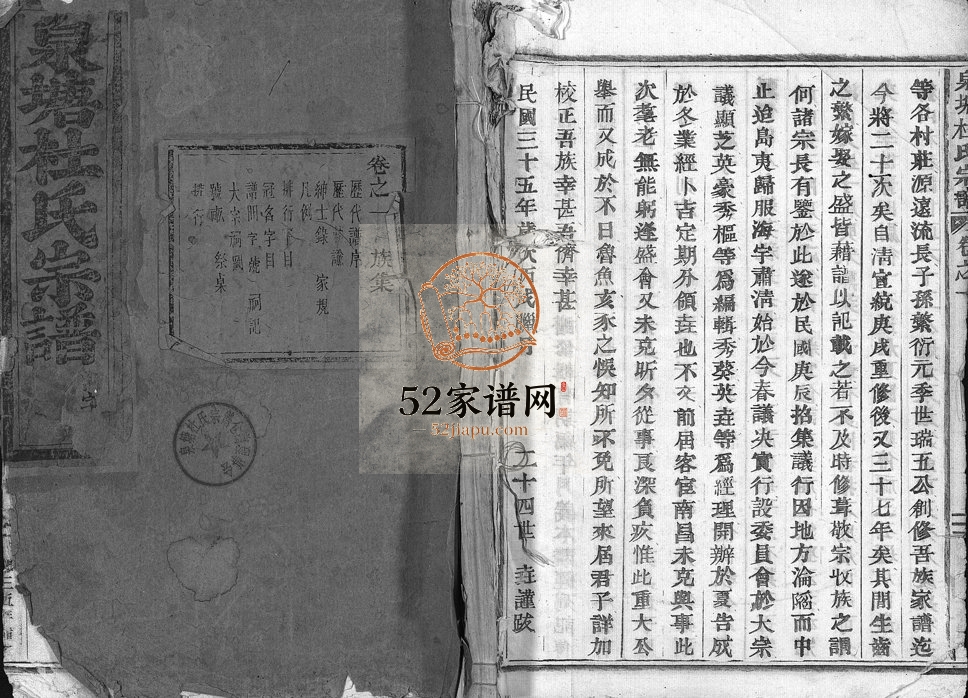 泉塘杜氏宗譜
卷之一 族集
歷代譜序
歷代
凡例
紳士錄 家規
排行 目
冠名字目
譜開字號 祠記
大宗祠圖
號 祭桌
排行
52家谱网
52jiapu.com
泉塘杜氏宗譜 卷之一
等各村莊源遠流長子孫繁衍元季世瑞五公創修吾族家譜迄
今將二十一次矣自清宣統庚戌重修後又三十七年矣其間生齒
之繁嫁娶之盛皆藉譜以記載之若不及時修葺敬宗收族之謂
何諸宗長有鑒於此遂於民國庚辰招集議行因地方淪陷而中
止迨島夷歸服海宇肅清始於今春議决實行設委員會於大宗
議顯芝英豪秀樞等爲編輯秀葵英垚等爲經理開辦於夏告成
於冬業經卜吉定期分領垚也不文前居客官南昌未克與事此
次耄老無能躬逢盛會又未克昕夕從事良深負疚惟此重大公
舉而又成於不日魯魚亥豕之悞知所不免所望來居君子詳加
校正吾族幸甚吾儕幸甚
民國三十五年歲次丙戌 二十四世 垚謹跋